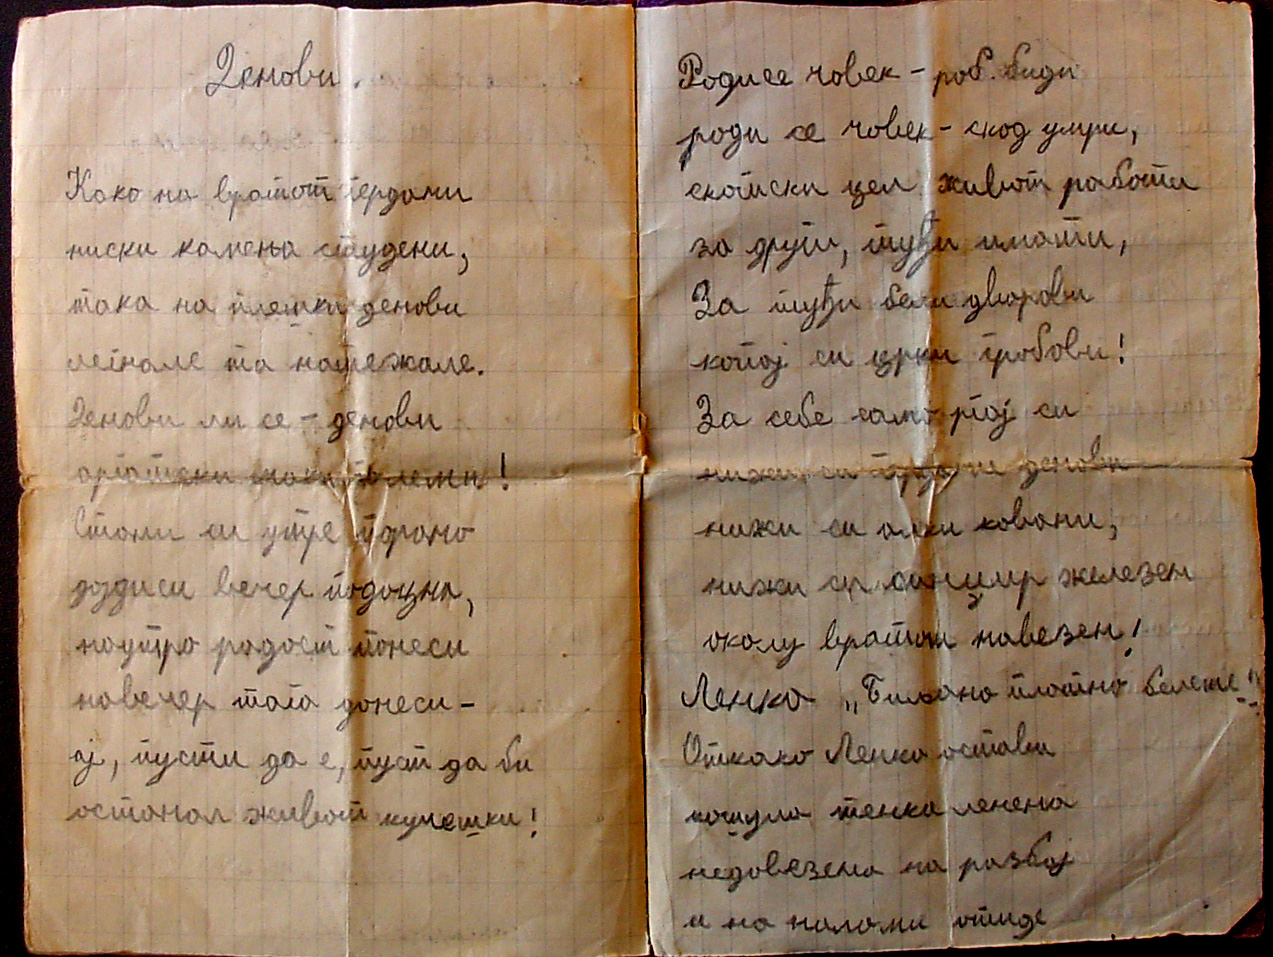 Денови.
Како на вратот ѓердани
ниски камења студени,
така на плешки денови
легнале та натежале.
Денови ли се - денови
аргатски маки големи!
Стани си утре порано
дојди си вечер подоцна,
наутро радост понеси
навечер тага донеси -
ај, пусти да е, пуст да би
останал живот кучешки!
Роди се човек - роб биди
роди се човек - скод умри,
скотски цел живот работи
за други, туѓи имоти,
За туѓи бели дворови
копај си црни гробови!
За себе само ргај си
нижи си ѓердан денови
нижи си алки ковани,
нижи си синџир железен
околу вратот навезен!
Ленка „Билјана платно белеше"
Откако Ленка остави
кошула тенка ленена
недовезена на разбој
и на наломи отиде